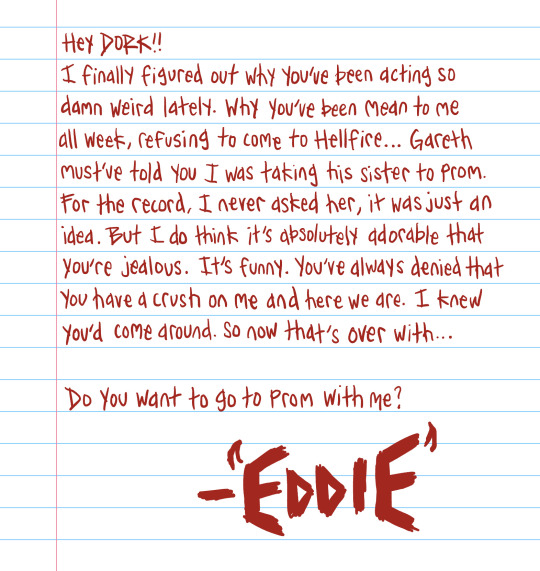 Hey DORK!!
I finally figured out why you've been acting so
damn weird lately. Why you've been mean to me
all week, refusing to come to Hellfire... Gareth
must've told you I was taking his sister to prom.
For the record, I never asked her, it was just an
idea. But I do think it's absolutely adorable that
you're jealous. It's funny. You've always denied that
you have a crush on me and here we are. I knew
you'd come around. So now that's over with...
Do you want to go to prom with me?
-"EDDIE"